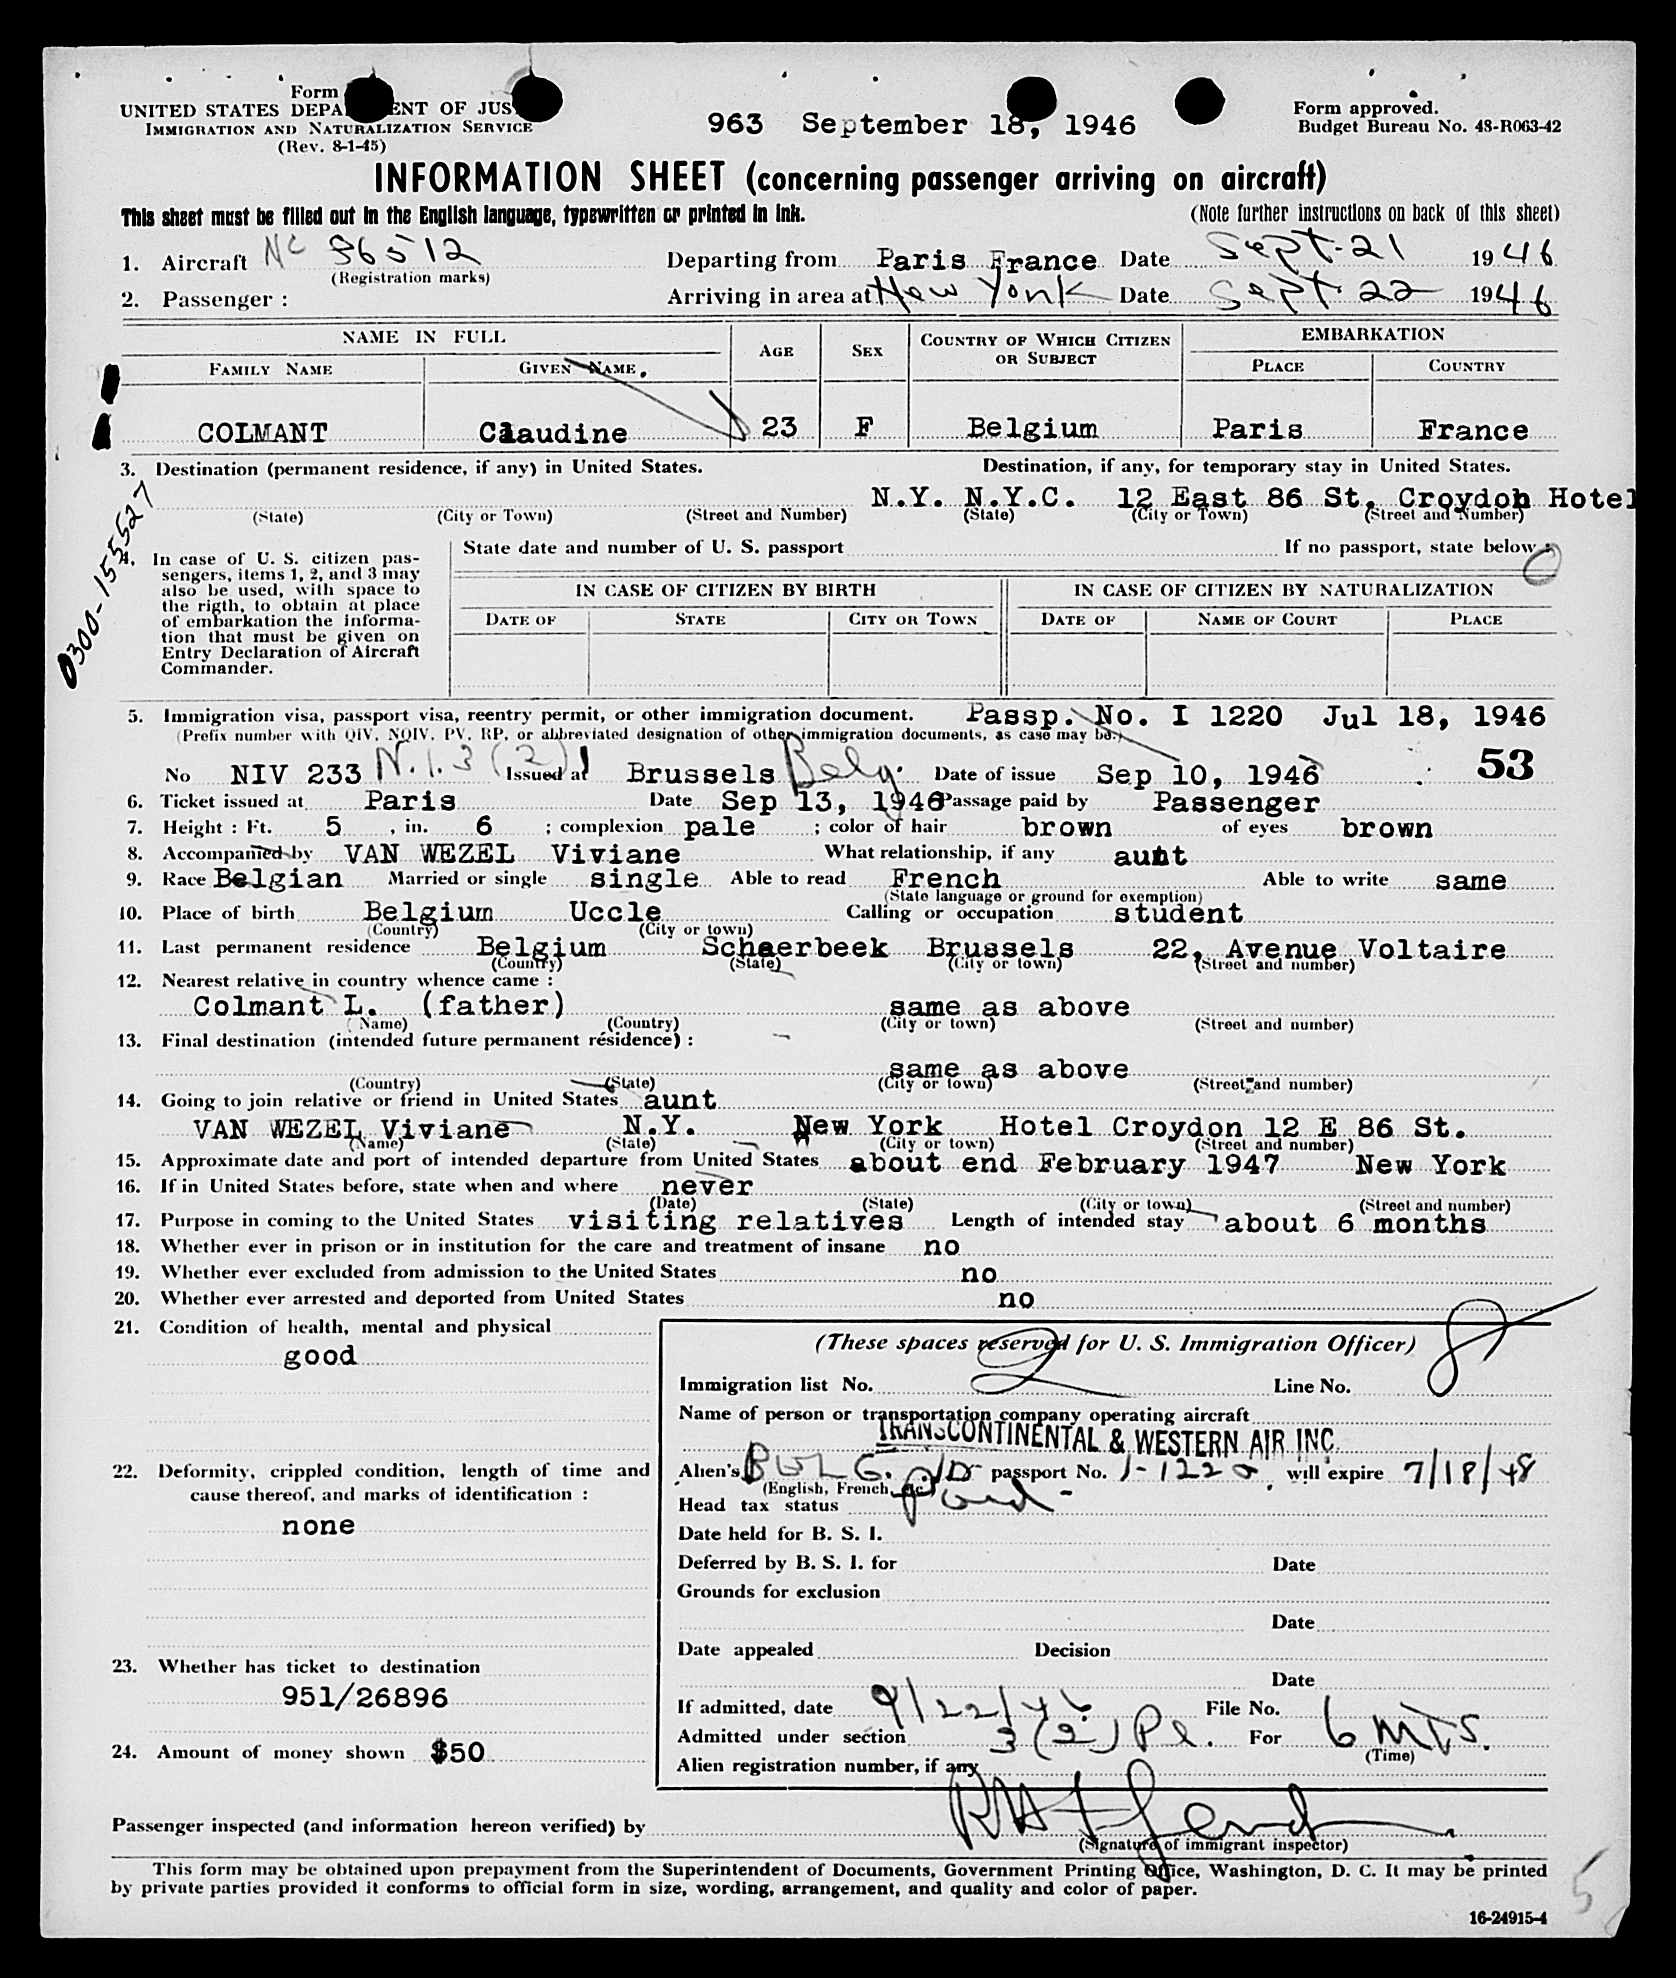 Form
UNITED STATES DEPA ENT OF JUS
IMMIGRATION AND NATURALIZATION SERVICE
(Rev. 8-1-45)
963 September 18, 1946
Form approved.
Budget Bureau No. 43-R063-42
INFORMATION SHEET (concerning passenger arriving on aircraft)
This sheet must be filled out in the English language, typewritten or printed in ink.
(Note further instructions on back of this sheet)
1. Aircraft NC 86512 Departing from Paris France Date Sept. 21 1946
(Registration marks)
2. Passenger : Arriving in area at New York Date Sept. 22 1946
NAME IN FULL AGE SEX COUNTRY OF WHICH CITIZEN OR SUBJECT EMBARKATION
FAMILY NAME GIVEN NAME PLACE COUNTRY
COLMANT Claudine 23 F Belgium Paris France
3. Destination (permanent residence, if any) in United States. Destination, if any, for temporary stay in United States.
N.Y. N.Y.C. 12 East 86 St. Croydon Hotel
(State) (City or Town) (Street and Number) (State) (City or Town) (Street and Number)
0300-155527
4. In case of U. S. citizen pas-
sengers, items 1, 2, and 3 may
also be used, with space to
the rigth, to obtain at place
of embarkation the informa-
tion that must be given on
Entry Declaration of Aircraft
Commander.
State date and number of U. S. passport If no passport, state below :
IN CASE OF CITIZEN BY BIRTH IN CASE OF CITIZEN BY NATURALIZATION
DATE OF STATE CITY OR TOWN DATE OF NAME OF COURT PLACE
5. Immigration visa, passport visa, reentry permit, or other immigration document. Passp. No. I 1220 Jul 18, 1946
(Prefix number with QIV, NQIV, PV, RP, or abbreviated designation of other immigration documents, as case may be.)
No NIV 233 N.I. 3 (2) Issued at Brussels Belg. Date of issue Sep 10, 1946 53
6. Ticket issued at Paris Date Sep 13, 1946 Passage paid by Passenger
7. Height : Ft. 5 , in. 6 ; complexion pale ; color of hair brown of eyes brown
8. Accompanied by VAN WEZEL Viviane What relationship, if any aunt
9. Race Belgian Married or single single Able to read French Able to write same
(State language or ground for exemption)
10. Place of birth Belgium Uccle Calling or occupation student
(Country) (City or town)
11. Last permanent residence Belgium Schaerbeek Brussels 22, Avenue Voltaire
(Country) (State) (City or town) (Street and number)
12. Nearest relative in country whence came :
Colmant L. (father) same as above
(Name) (Country) (City or town) (Street and number)
13. Final destination (intended future permanent résidence) :
same as above
(Country) (State) (City or town) (Street and number)
14. Going to join relative or friend in United States aunt
VAN WEZEL Viviane N.Y. New York Hotel Croydon 12 E 86 St.
(Name) (State) (City or town) (Street and number)
15. Approximate date and port of intended departure from United States about end February 1947 New York
16. If in United States before, state when and where never
(Date) (State) (City or town) (Street and number)
17. Purpose in coming to the United States visiting relatives Length of intended stay about 6 months
18. Whether ever in prison or in institution for the care and treatment of insane no
19. Whether ever excluded from admission to the United States no
20. Whether ever arrested and deported from United States no
21. Condition of health, mental and physical
good
22. Deformity, crippled condition, length of time and
cause thereof, and marks of identification :
none
23. Whether has ticket to destination
951/26896
24. Amount of money shown $50
(These spaces reserved for U. S. Immigration Officer)
Immigration list No. 2 Line No. 8
Name of person or transportation company operating aircraft
TRANSCONTINENTAL & WESTERN AIR INC.
Alien's passport No. I-1220 will expire 7/18/48
(English, French, etc.)
Head tax status
Date held for B. S. I.
Deferred by B. S. I. for Date
Grounds for exclusion
Date
Date appealed Decision
Date
If admitted, date 9/22/46 File No.
Admitted under section 3 (2) Pl. For 6 MTS.
(Time)
Alien registration number, if any
Passenger inspected (and information hereon verified) by
(Signature of immigrant inspector)
This form may be obtained upon prepayment from the Superintendent of Documents, Government Printing Office, Washington, D. C. It may be printed
by private parties provided it conforms to official form in size, wording, arrangement, and quality and color of paper.
5
16-24915-4